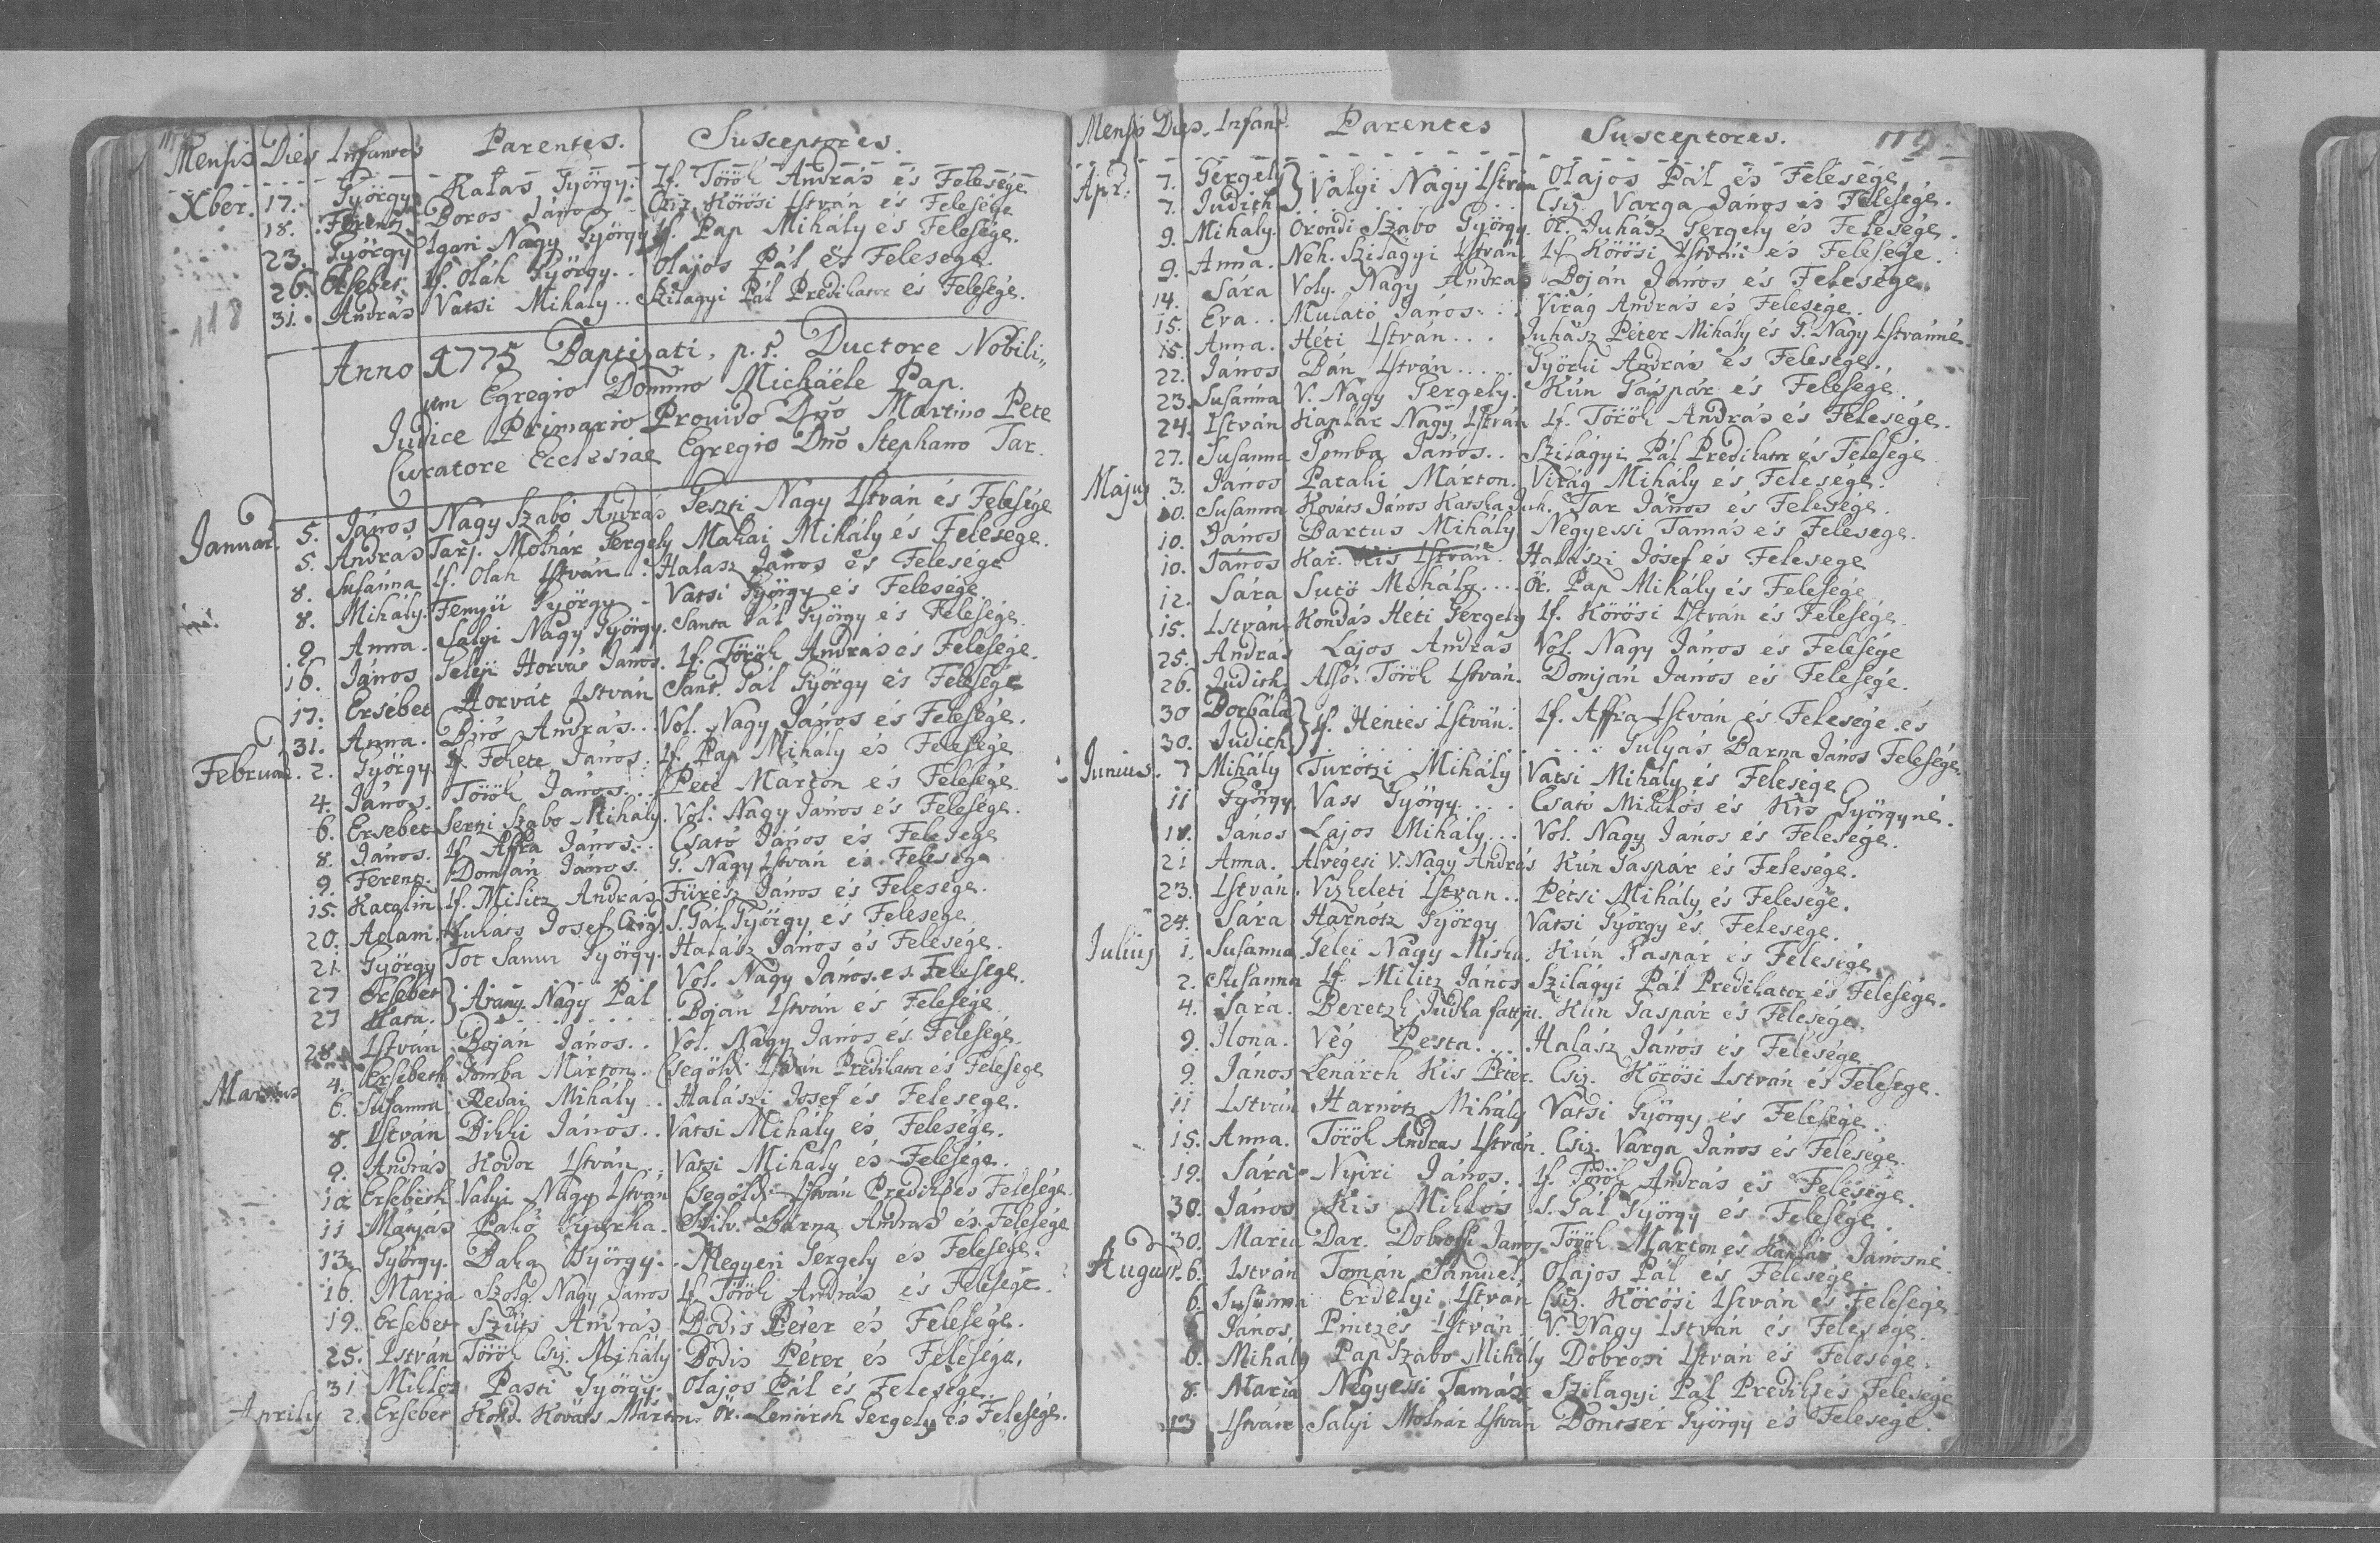 Mensis Dies Infantes Parentes. Susceptores.
Xber. 17. György Kalas György. If. Török András és Felesége
18. Ferentz Boros János Csiz. Körösi István és Felesége
23. György Igari Nagy György If. Pap Mihály és Felesége.
26. Ersebet If. Oláh György. Olajos Pál és Felesege.
31. András Vatsi Mihaly.. Szilagyi Pál Predikator és Felesége.
118
Anno 1775 Baptizati, p. t. Ductore Nobili„
um Egregio Domino Michaële Pap.
Judice Primario Provido Dño Martino Pete
Curatore Ecclesiae Egregio Dño Stephano Tar.
Januar. 5. János Nagy Szabó András Geszti Nagy István és Felesége
5. András Tarj. Molnár Gergely Makai Mihály és Felesége.
8. Susánna If. Olah István.. Halasz János és Felesége
8. Mihály. Fenyü György.. Vatsi György és Felesége.
9. Anna. Salyi Nagy György. Santa Gál György és Felesége.
16. János Gelei Horvás János. If. Török András és Felesége.
17. Ersébet Horvát István Sant. Gál György és Felesége
31. Anna. Biró András... Vol. Nagy János és Felesége.
Februar. 2. György If. Fekete János. If. Pap Mihály és Felesége
4. János. Török János... Pete Márton és Felesége.
6. Ersebet Serni Szabo Mihály. Vol. Nagy János és Felesége.
8. János. If. Affra János... Csató János és Felesége
9. Ferentz. Domján János. G. Nagy István és Felesége
15. Katalin. If. Militz András Fürész János és Felesége.
20. Adam. Juhász Josef S. Gál György és Felesege.
21 György Tot Samu György. Halász János és Felesége.
27 Ersebet } Arany Nagy Pál Vol. Nagy János és Felesége.
27 Kata. Boján István és Felesége
28. István Boján János.. Vol. Nagy János és Felesége.
Martius 4. Ersebeth Gomba Márton.. Csegöldi István Predikator és Felesége
6. Susanna Revai Mihály.. Halászi Josef és Felesege.
8. István Dikki János.. Vatsi Mihály és Felesége.
9. András Kodor István.. Vatsi Mihály és Felesége.
10 Ersebeth Valyi Nagy István Csegöldi István Predik. és Felesége.
11 Mátyás Pakó Gyurka. Szilv. Barna András és Felesége
13. György. Daka György. Megyeri Gergely és Felesége.
16. Mária Szolg. Nagy János If. Török András és Felesége.
19. Ersebet Szüts András Bodis Péter és Felesége.
25. István Török Csiz. Mihály Bodis Péter és Felesége.
31 Miklós Pasti György. Olajos Pál és Felesége.
Aprilis 2. Ersebet Kond. Kováts Márton. Ör. Lenárth Gergely és Felesége.
Mensis Dies. Infant. Parentes Susceptores. 119
Apr. 7. Gergely } Valyi Nagy István Olajos Pál és Felesége,
7. Judith Csiz. Varga János és Felesége.
9. Mihaly. Oröndi Szabo György. Ör. Juhász Gergely és Felesége.
9. Anna. Neh. Szilagyi István. If. Körösi István és Felesége.
14. Sára Voly. Nagy András Boján János és Felesége.
15. Eva.. Mulató János... Virág András és Felesége.
15. Anna. Héti István... Juhász Péter Mihály és G. Nagy Istvánné.
22. János Bán István..... Györki András és Felesége.
23. Susánna V. Nagy Gergely. Kún Gáspár és Felesége.
24. István Kaplár Nagy István If. Török András és Felesége.
27. Susanna Gomba János.. Szilágyi Pál Predikator és Felesége
Majus 3. János Pataki Márton. Virág Mihály és Felesége.
10. Susanna Kováts János Katska Juh. Tar János és Felesége.
10. János Bartus Mihály Negyessi Tamás és Felesege.
10. János Kar. Kis István. Halászi Josef és Felesege
12. Sára Sutö Mihály.... Ör. Pap Mihály és Felesége
15. István Kondás Héti Gergely If. Körösi István és Felesége.
25. András Lajos András Vol. Nagy János és Felesége
26. Judith Alsó. Török István. Domján János és Felesége.
30 Borbála } If. Hentes István. If. Affra István és Felesége és
30. Judith Gulyás Barna János Felesége.
Junius. 7 Mihály Turótzi Mihály Vatsi Mihály és Felesége
11 György. Vass György.... Csató Miklós és Kis Györgyné.
18. János Lajos Mihály... Vol. Nagy János és Felesége.
21 Anna. Alvégesi V. Nagy András Kún Gaspár és Felesége.
23. István. Vizkeleti István.. Pétsi Mihály és Felesége.
24. Sára Harnótz György Vatsi György és Felesege.
Julius 1. Susanna. Gelei Nagy Miska. Kún Gaspár és Felesége
2. Susanna If. Militz János Szilágyi Pál Predikator és Felesége.
4. Sára. Deretzk Judka fattju. Kún Gaspár és Felesége.
9. Ilona. Vég Pesta... Halász János és Felesége
9. János Lenárth Kis Péter. Csiz. Körösi István és Felesége.
11 István Harnótz Mihály Vatsi György és Felésége.
15. Anna. Török András István. Csiz. Varga János és Felesége.
19. Sára. Nyiri János. If. Török András és Felesége.
30. János Kis Miklós S. Gál György és Felesége.
30. Maria Dar. Dobrossi János. Török Márton és Kaplár Jánosné.
August. 6. István Tomán Sámuel. Olajos Pál és Felesége.
6. Susanna Erdélyi István Csiz. Körösi István és Felesége
6 János Pintzés István. V. Nagy István és Felesége.
6. Mihály Pap Szabo Mihály Dobrosi István és Felesége.
8. Maria Négyessi Tamás Szilagyi Pál Predik. és Felesége
13 István Salyi Molnár István Dontsér György és Felesége.